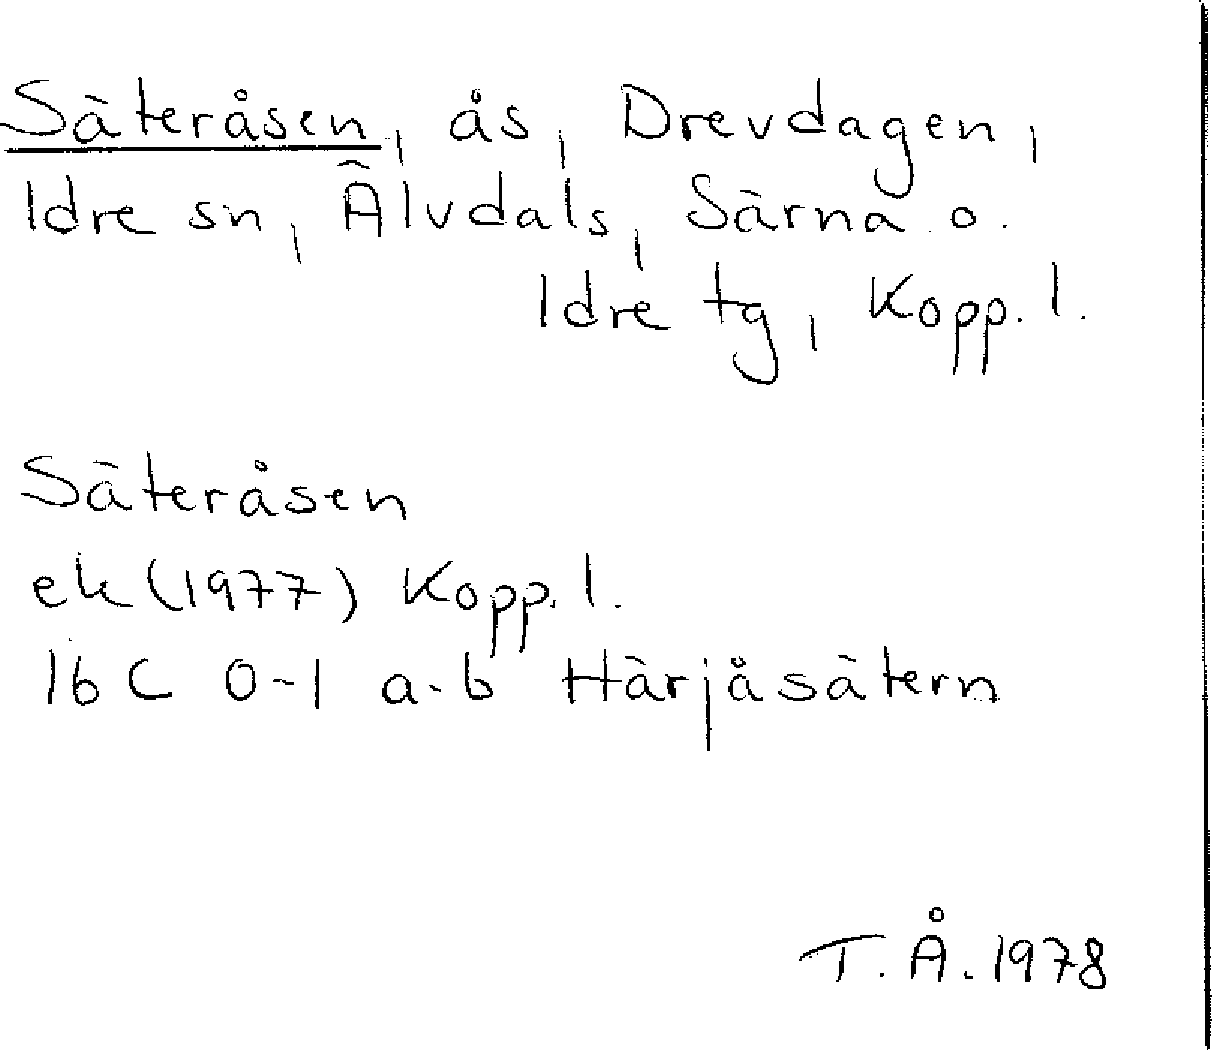 Säteråsen, ås, Drevdagen,
Idre sn, Älvdals, Särna o.
Idre tg, Kopp. l.
Säteråsen
ek (1977) Kopp. l.
16 C 0-1 a-b Härjåsätern
T. Å. 1978